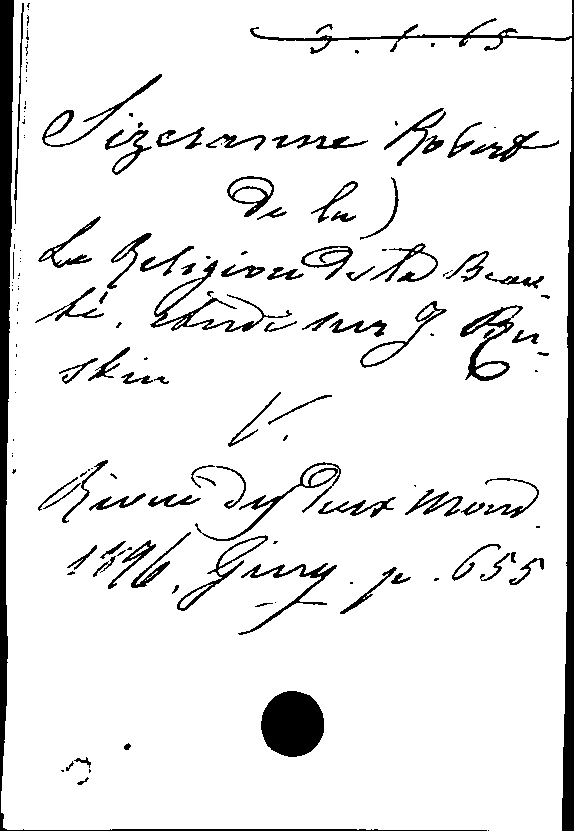 3. 1. 65
Sizeranne Robert
de la)
La Religion de la Beau-
té, étude sur J. Ru-
skin
V.
Revue des deux Mond.
1896, p. 655